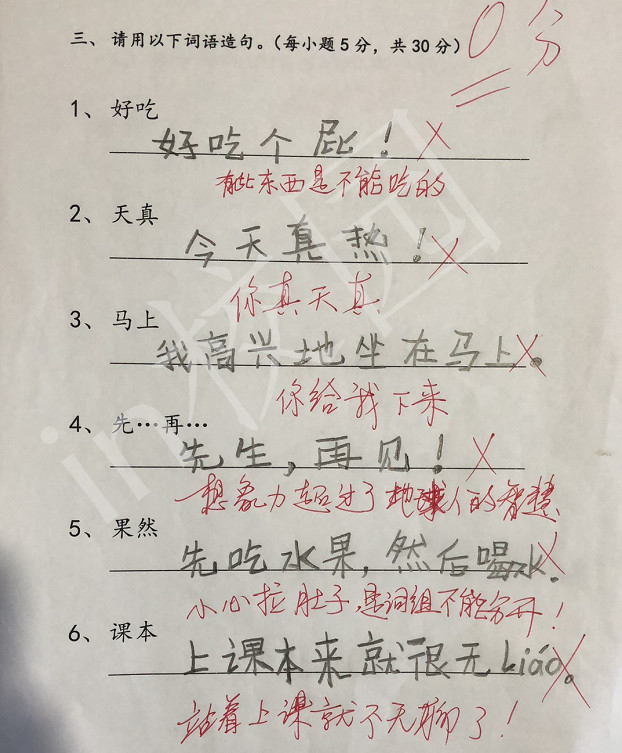 三、请用以下词语造句。（每小题5分，共30分）
0分
1、好吃
好吃个屁！
有些东西是不能吃的
2、天真
今天真热！
你真天真
3、马上
我高兴地坐在马上。
你给我下来
4、先…再…
先生，再见！
想象力超过了地球人的智慧
5、果然
先吃水果，然后喝水.
小心拉肚子,是词组不能分开！
6、课本
上课本来就很无liáo。
站着上课就不无聊了！
in校园